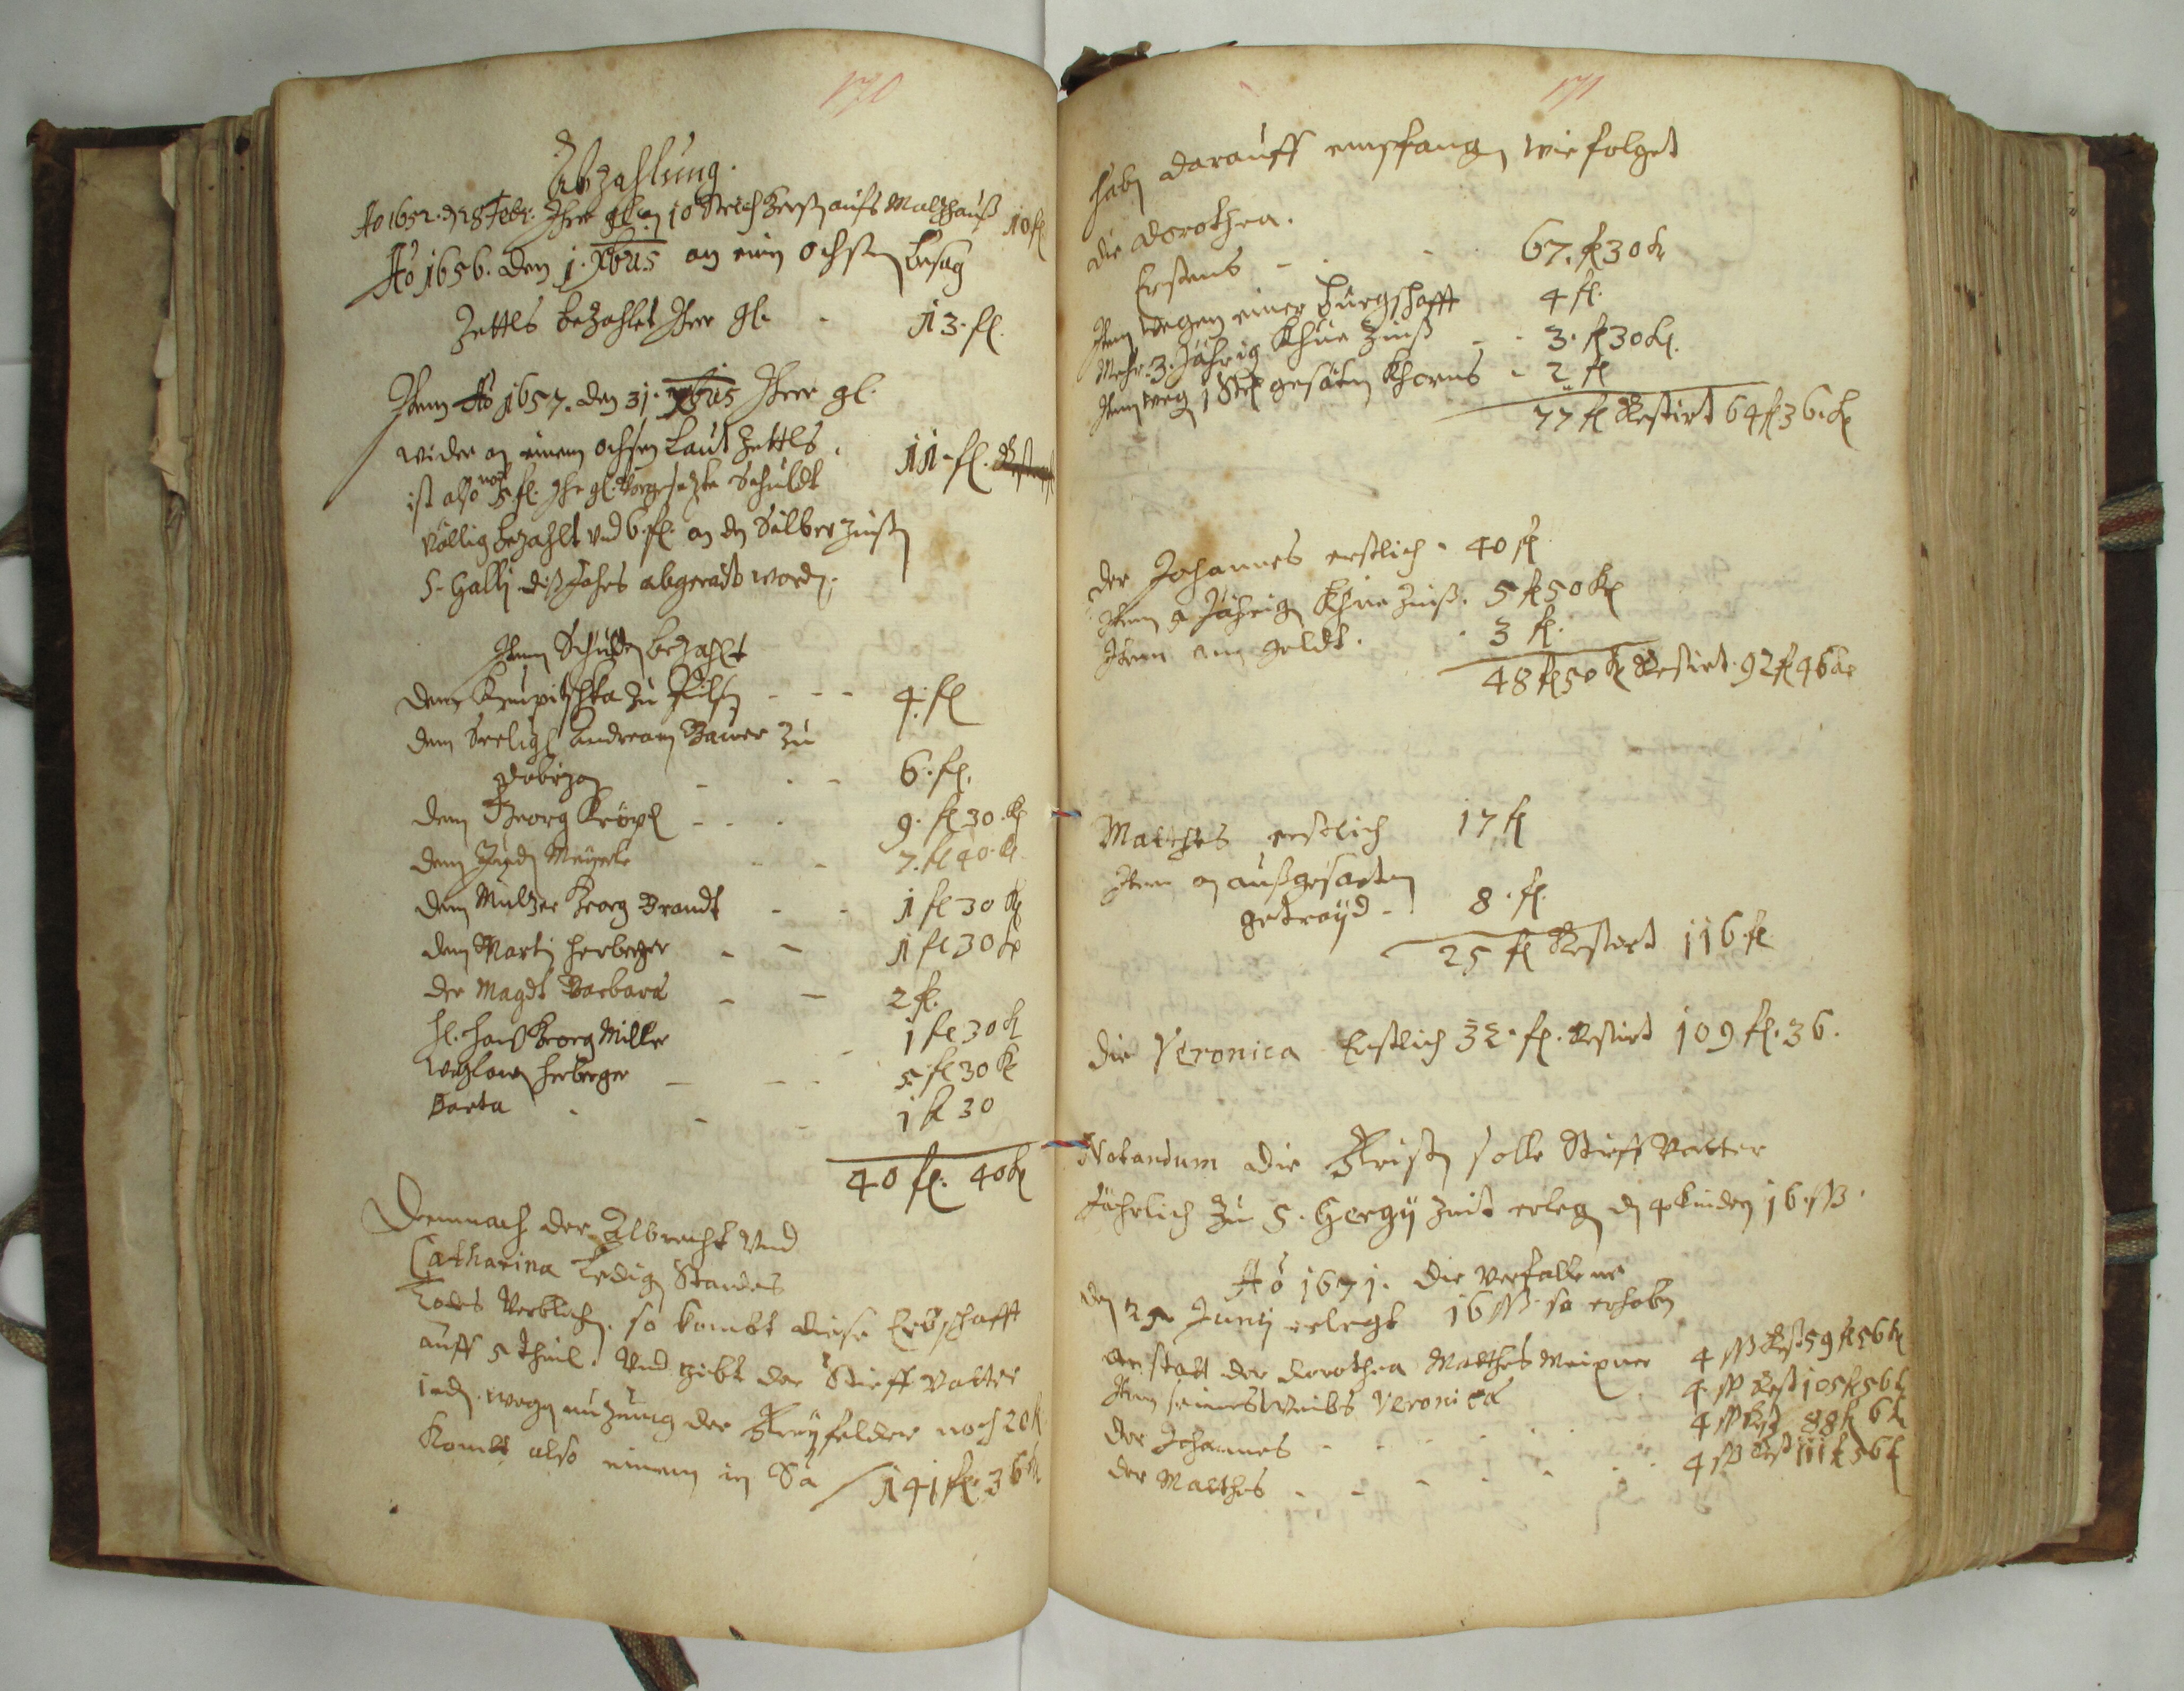 170
Abzahlung.
Ao 1652. den 28 Febr. Ihre gl. 10 Strich Gersten aufs Maltzhauß 10 fl
Ao 1656. den 1. Xbris an ein ochsen besag
Zettls bezahlet Ihre gl. - 13. fl.
Item Ao 1657. den 31. Xbris Ihre gl.
wider an einem ochsen Laut Zettls. 11. fl.
ist also noch 5 fl. Ihr gl. Vorgesetzte Schuldt
völlig bezahlt und 6. fl. an den Silber Zinsen
S. Galli diß Jahrs abgeraith worden.
Item Schulden bezahlt
dem zu Pilsen - - - 4. fl
dem Seeligen Andreas Bawer zu
Dobrzan - - - 6. fl.
dem Georg Kröpl - - - 9. fl 30. kr
dem Meyerle - - 7. fl 40. kr
dem Mültzer Georg Brandt - - 1 fl 30 kr
dem Martin Herberger - - 1 fl 30 kr
der Magdt Barbara - - 2 fl.
H. Hanß Georg Miller - 1 fl 30 kr
Herberger - - - 5 fl 30 kr
Barta - - - 1 fl 30
40 fl. 40 kr
Demnach der Albrecht Und
Catharina Ledigen Standes
Todes Verblichen. so kombt diese Erbschafft
auff 5 Theil. Und gibt der Stieff Vatter
jeden. wegen nutzung der Freyfelder noch 20 fl
Kombt also einem in Sa 141 fl. 36 kr
171
haben darauff empfangen wie folget
die Dorothea.
Erstens - - 67. fl 30 kr
Item wegen einer bürgschafft 4 fl.
Mehr. 3. Jährig Khüe Zinß - - 3. fl 30 kr.
Item weg. 1 Str gesäten Khorns - 2 fl
77 fl Restirt 64 fl 36. kr
der Johannes erstlich - 40 fl
Item Jährigen Khüe Zinß. 5 fl 50 kr
Item am geldt. - 3 fl.
48 fl 50 kr Restirt. 92 fl 46 kr
Matthes erstlich 17 fl
Item an außgesaeten
getrayd - 8. fl.
25 fl Restirt 116 fl
die Veronica Erstlich 32. fl. Restirt 109 fl. 36.
Notandum die Fristen solle Stieff Vatter
Jährlich Zu S. Georgy Zeit erlegen den 4 kindern 16 ss.
Ao 1671. die verfallene
den 25 Juny erlegt 16 ss. so erhoben
an statt der Dorothea Matthes Meixner 4 ss Rest 59 fl 56 kr
Item seines Weibs Veronica 4. ss Rest 105 fl 56 kr
der Johannes - - - - - 4 ss Rest 88 fl 6 kr
der Matthes - - - - - 4 ss Rest 111 fl 56 kr